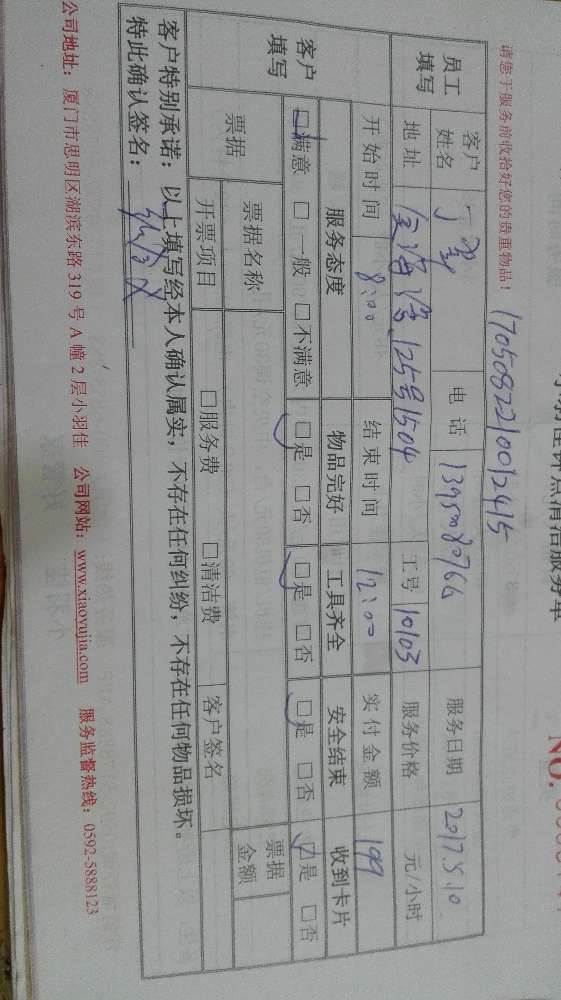 小羽佳钟点清洁服务单
NO.
请您于服务前收拾好您的贵重物品！
1705082210012415
员工填写
客户姓名 电话 服务日期 2017.5.10
地址 125号1504 工号 10103 服务价格 元/小时
开始时间 8:00 结束时间 12:00 实付金额 199
客户填写
服务态度 物品完好 工具齐全 安全结束 收到卡片
☑满意 □一般 □不满意 ☑是 □否 ☑是 □否 ☑是 □否 ☑是 □否
票据 票据名称 票据金额
开票项目 □服务费 □清洁费 客户签名
客户特别承诺：以上填写经本人确认属实，不存在任何纠纷，不存在任何物品损坏。
特此确认签名：
公司地址：厦门市思明区湖滨东路319号A幢2层小羽佳 公司网站：www.xiaoyujia.com 服务监督热线：0592-5888123